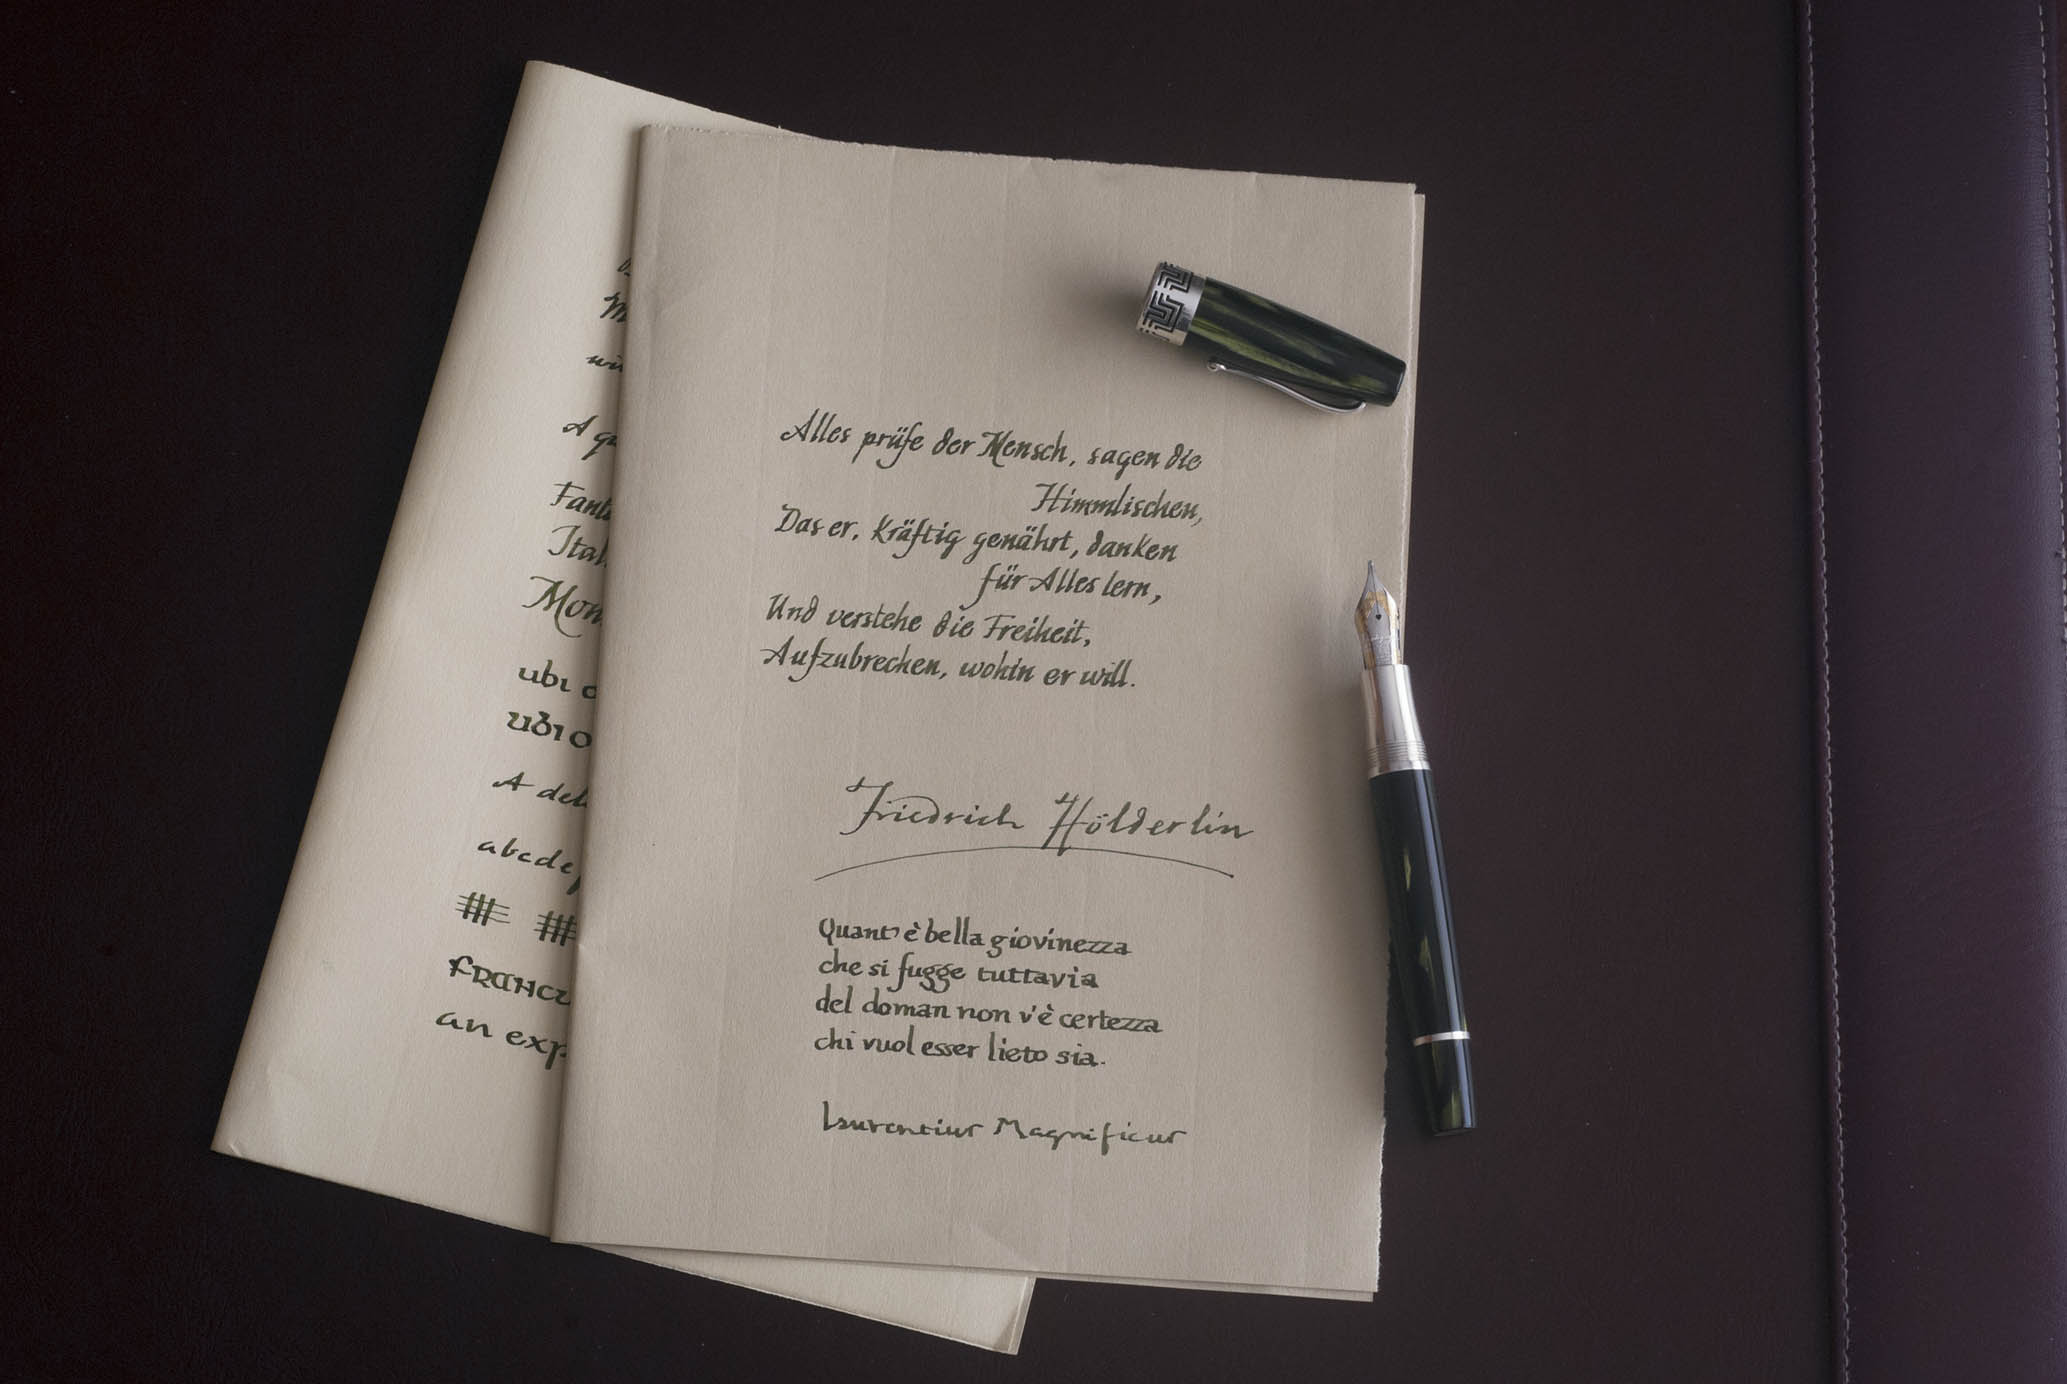 Alles prüfe der Mensch, sagen die
Himmlischen,
Das er, kräftig genährt, danken
für Alles lern,
Und verstehe die Freiheit,
Aufzubrechen, wohin er will.
Friedrich Hölderlin
Quant'è bella giovinezza
che si fugge tuttavia
del doman non v'è certezza
chi vuol esser lieto sia.
Laurentius Magnificus
A
Fant
Ital
Mon
ubi o
ubi o
A del
abcdef
FRANC
an exp